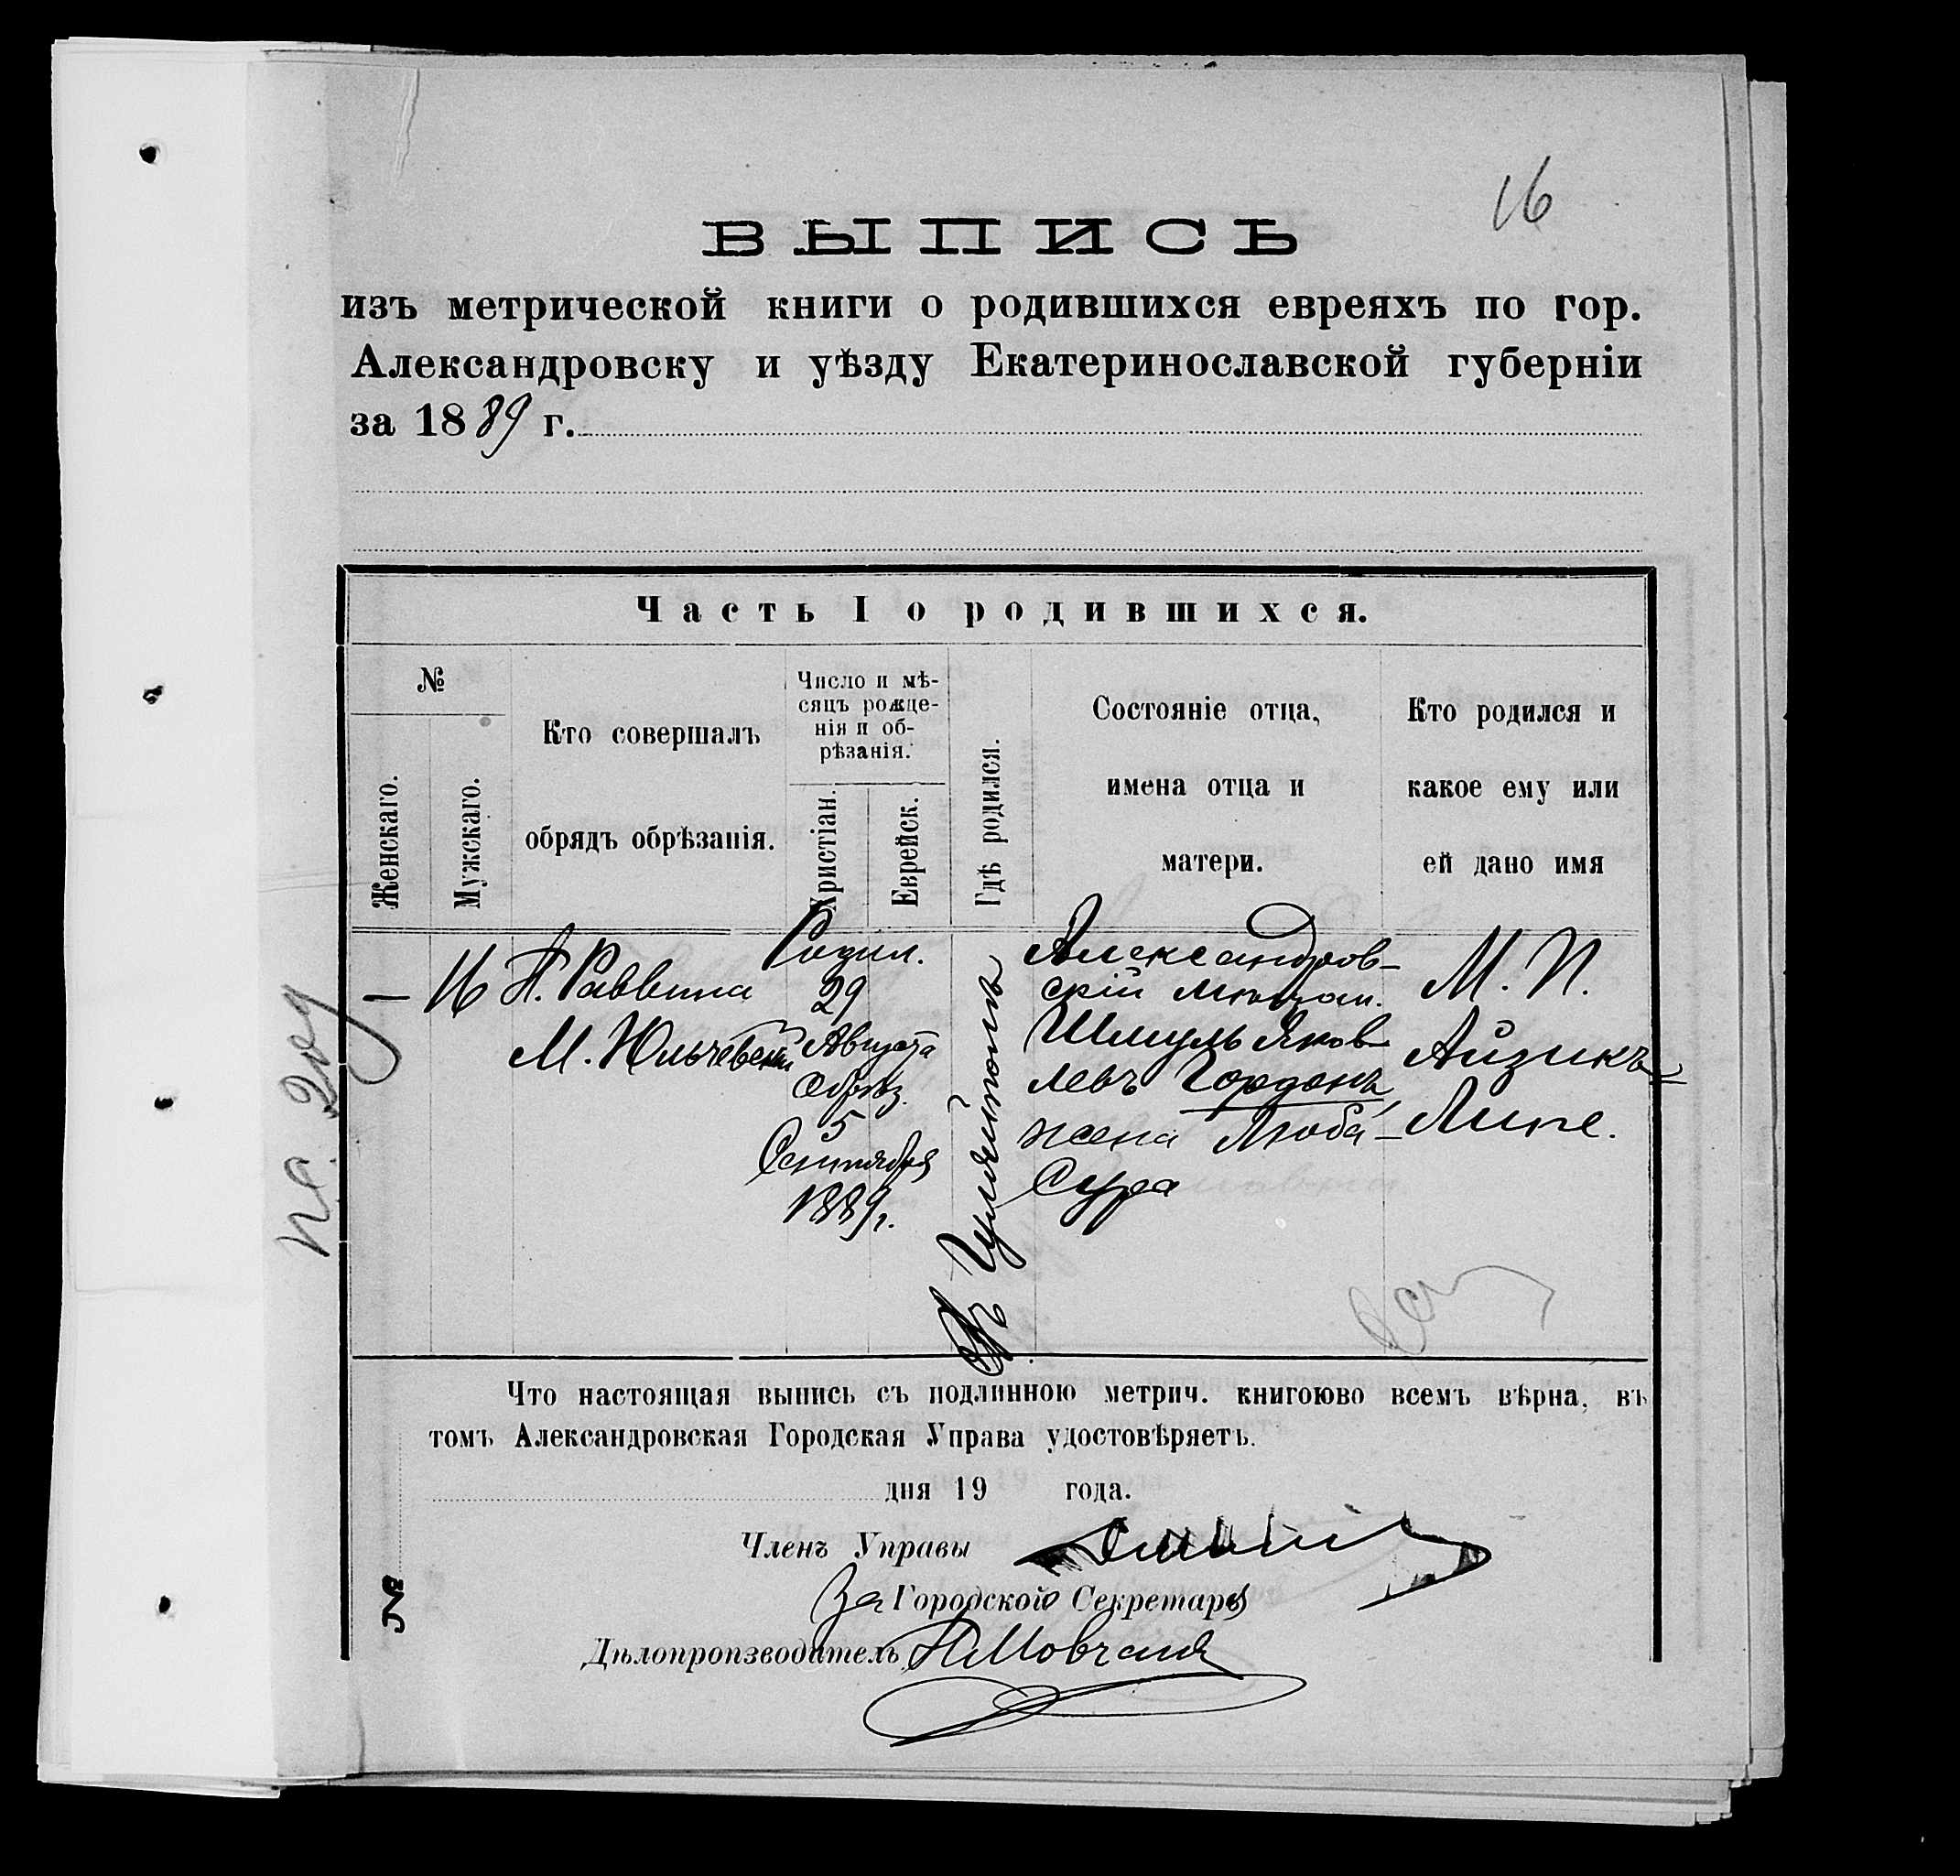 16
ВЫПИСЬ
изъ метрической книги о родившихся евреяхъ по гор.
Александровску и уѣзду Екатеринославской губерніи
за 1889 г.
Часть I о родившихся.
№
Женскаго.
Мужскаго.
Кто совершалъ
обрядъ обрѣзанія.
Число и мѣ-
сяцъ рожде-
нія и об-
рѣзанія.
Христіан.
Еврейск.
Гдѣ родился.
Состояніе отца,
имена отца и
матери.
Кто родился и
какое ему или
ей дано имя
—
16
П. Раввина
М. Юльчевскій
Родил.
29
Августа
Обрѣз.
5
Сентября
1889 г.
Въ Гуляйполѣ
Александров-
скій мѣщан.
Шмуль Яков-
левъ Гордонъ,
жена Люба-
Сура
М. П.
Айзикъ=
Липе.
Что настоящая выпись съ подлинною метрич. книгоюво всемъ вѣрна, въ
томъ Александровская Городская Управа удостовѣряетъ.
дня 19 года.
Членъ Управы
За Городской Секретарь
Дѣлопроизводитель Н Мовчанъ
№